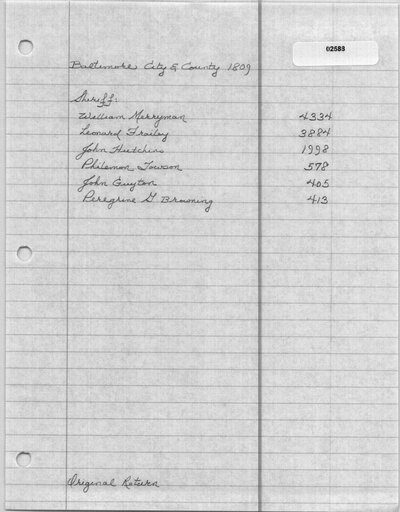 02583
Baltimore City & County 1809
Sheriff:
William Merryman 4334
Leonard Frailey 3884
John Hutchins 1998
Philemon Towson 578
John Guyton 405
Peregrine G. Browning 413
Original Return